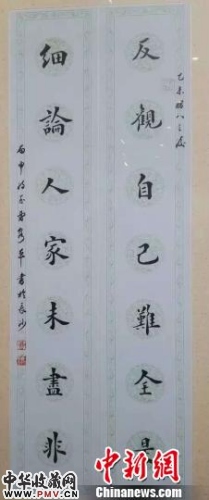 反觀自己難全是
細論人家未盡非
書於長沙
中华收藏网
www.PMV.cn
中新网
Chinanews.com